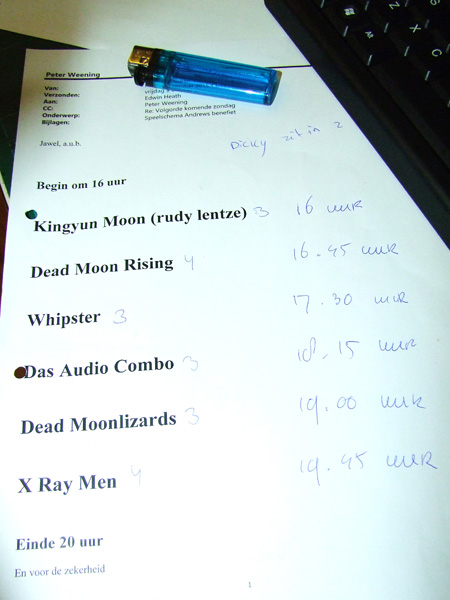 Peter Weening
Van:
Verzonden: vrijdag
Aan: Edwin Heath
CC: Peter Weening
Onderwerp: Re: Volgorde komende zondag
Bijlagen: Speelschema Andrews benefiet
Jawel, a.u.b.
Dicky zit in 2
Begin om 16 uur
Kingyun Moon (rudy lentze) 3 16 uur
Dead Moon Rising 4 16.45 uur
Whipster 3 17.30 uur
Das Audio Combo 3 18.15 uur
Dead Moonlizards 3 19.00 uur
X Ray Men 4 19.45 uur
Einde 20 uur
En voor de zekerheid
1